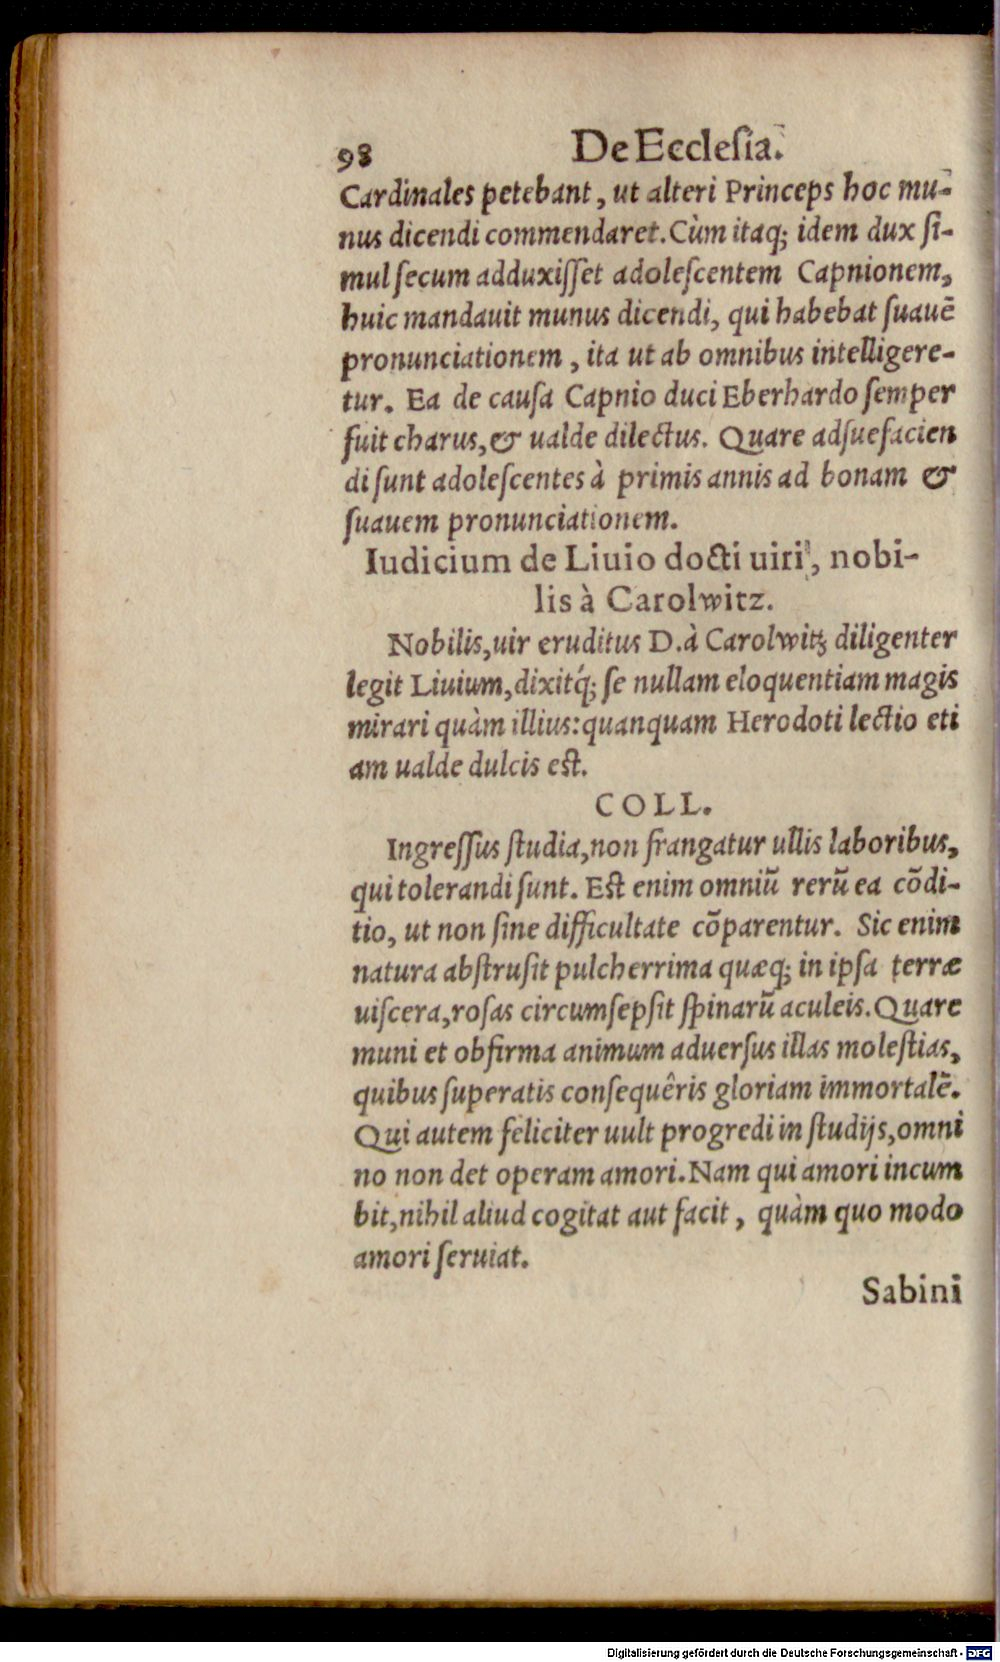 98 De Ecclesia.
Cardinales petebant, ut alteri Princeps hoc mu-
nus dicendi commendaret. Cùm itaq; idem dux ſi-
mul ſecum adduxiſſet adoleſcentem Capnionem,
huic mandauit munus dicendi, qui habebat ſuauē
pronunciationem, ita ut ab omnibus intelligere-
tur. Ea de cauſa Capnio duci Eberhardo ſemper
fuit charus, & ualde dilectus. Quare adſuefacien
di ſunt adoleſcentes à primis annis ad bonam &
ſuauem pronunciationem.
Iudicium de Liuio docti uiri, nobi-
lis à Carolwitz.
Nobilis, uir eruditus D. à Carolwitz diligenter
legit Liuium, dixitq́; ſe nullam eloquentiam magis
mirari quàm illius: quanquam Herodoti lectio eti
am ualde dulcis eſt.
COLL.
Ingreſſus ſtudia, non frangatur ullis laboribus,
qui tolerandi ſunt. Eſt enim omniū rerū ea cōdi-
tio, ut non ſine difficultate cōparentur. Sic enim
natura abſtruſit pulcherrima quæq; in ipſa terræ
uiſcera, roſas circumſepſit ſpinarū aculeis. Quare
muni et obfirma animum aduerſus illas moleſtias,
quibus ſuperatis conſequêris gloriam immortalē.
Qui autem feliciter uult progredi in ſtudijs, omni
no non det operam amori. Nam qui amori incum
bit, nihil aliud cogitat aut facit, quàm quo modo
amori ſeruiat.
Sabini
Digitalisierung gefördert durch die Deutsche Forschungsgemeinschaft - DFG